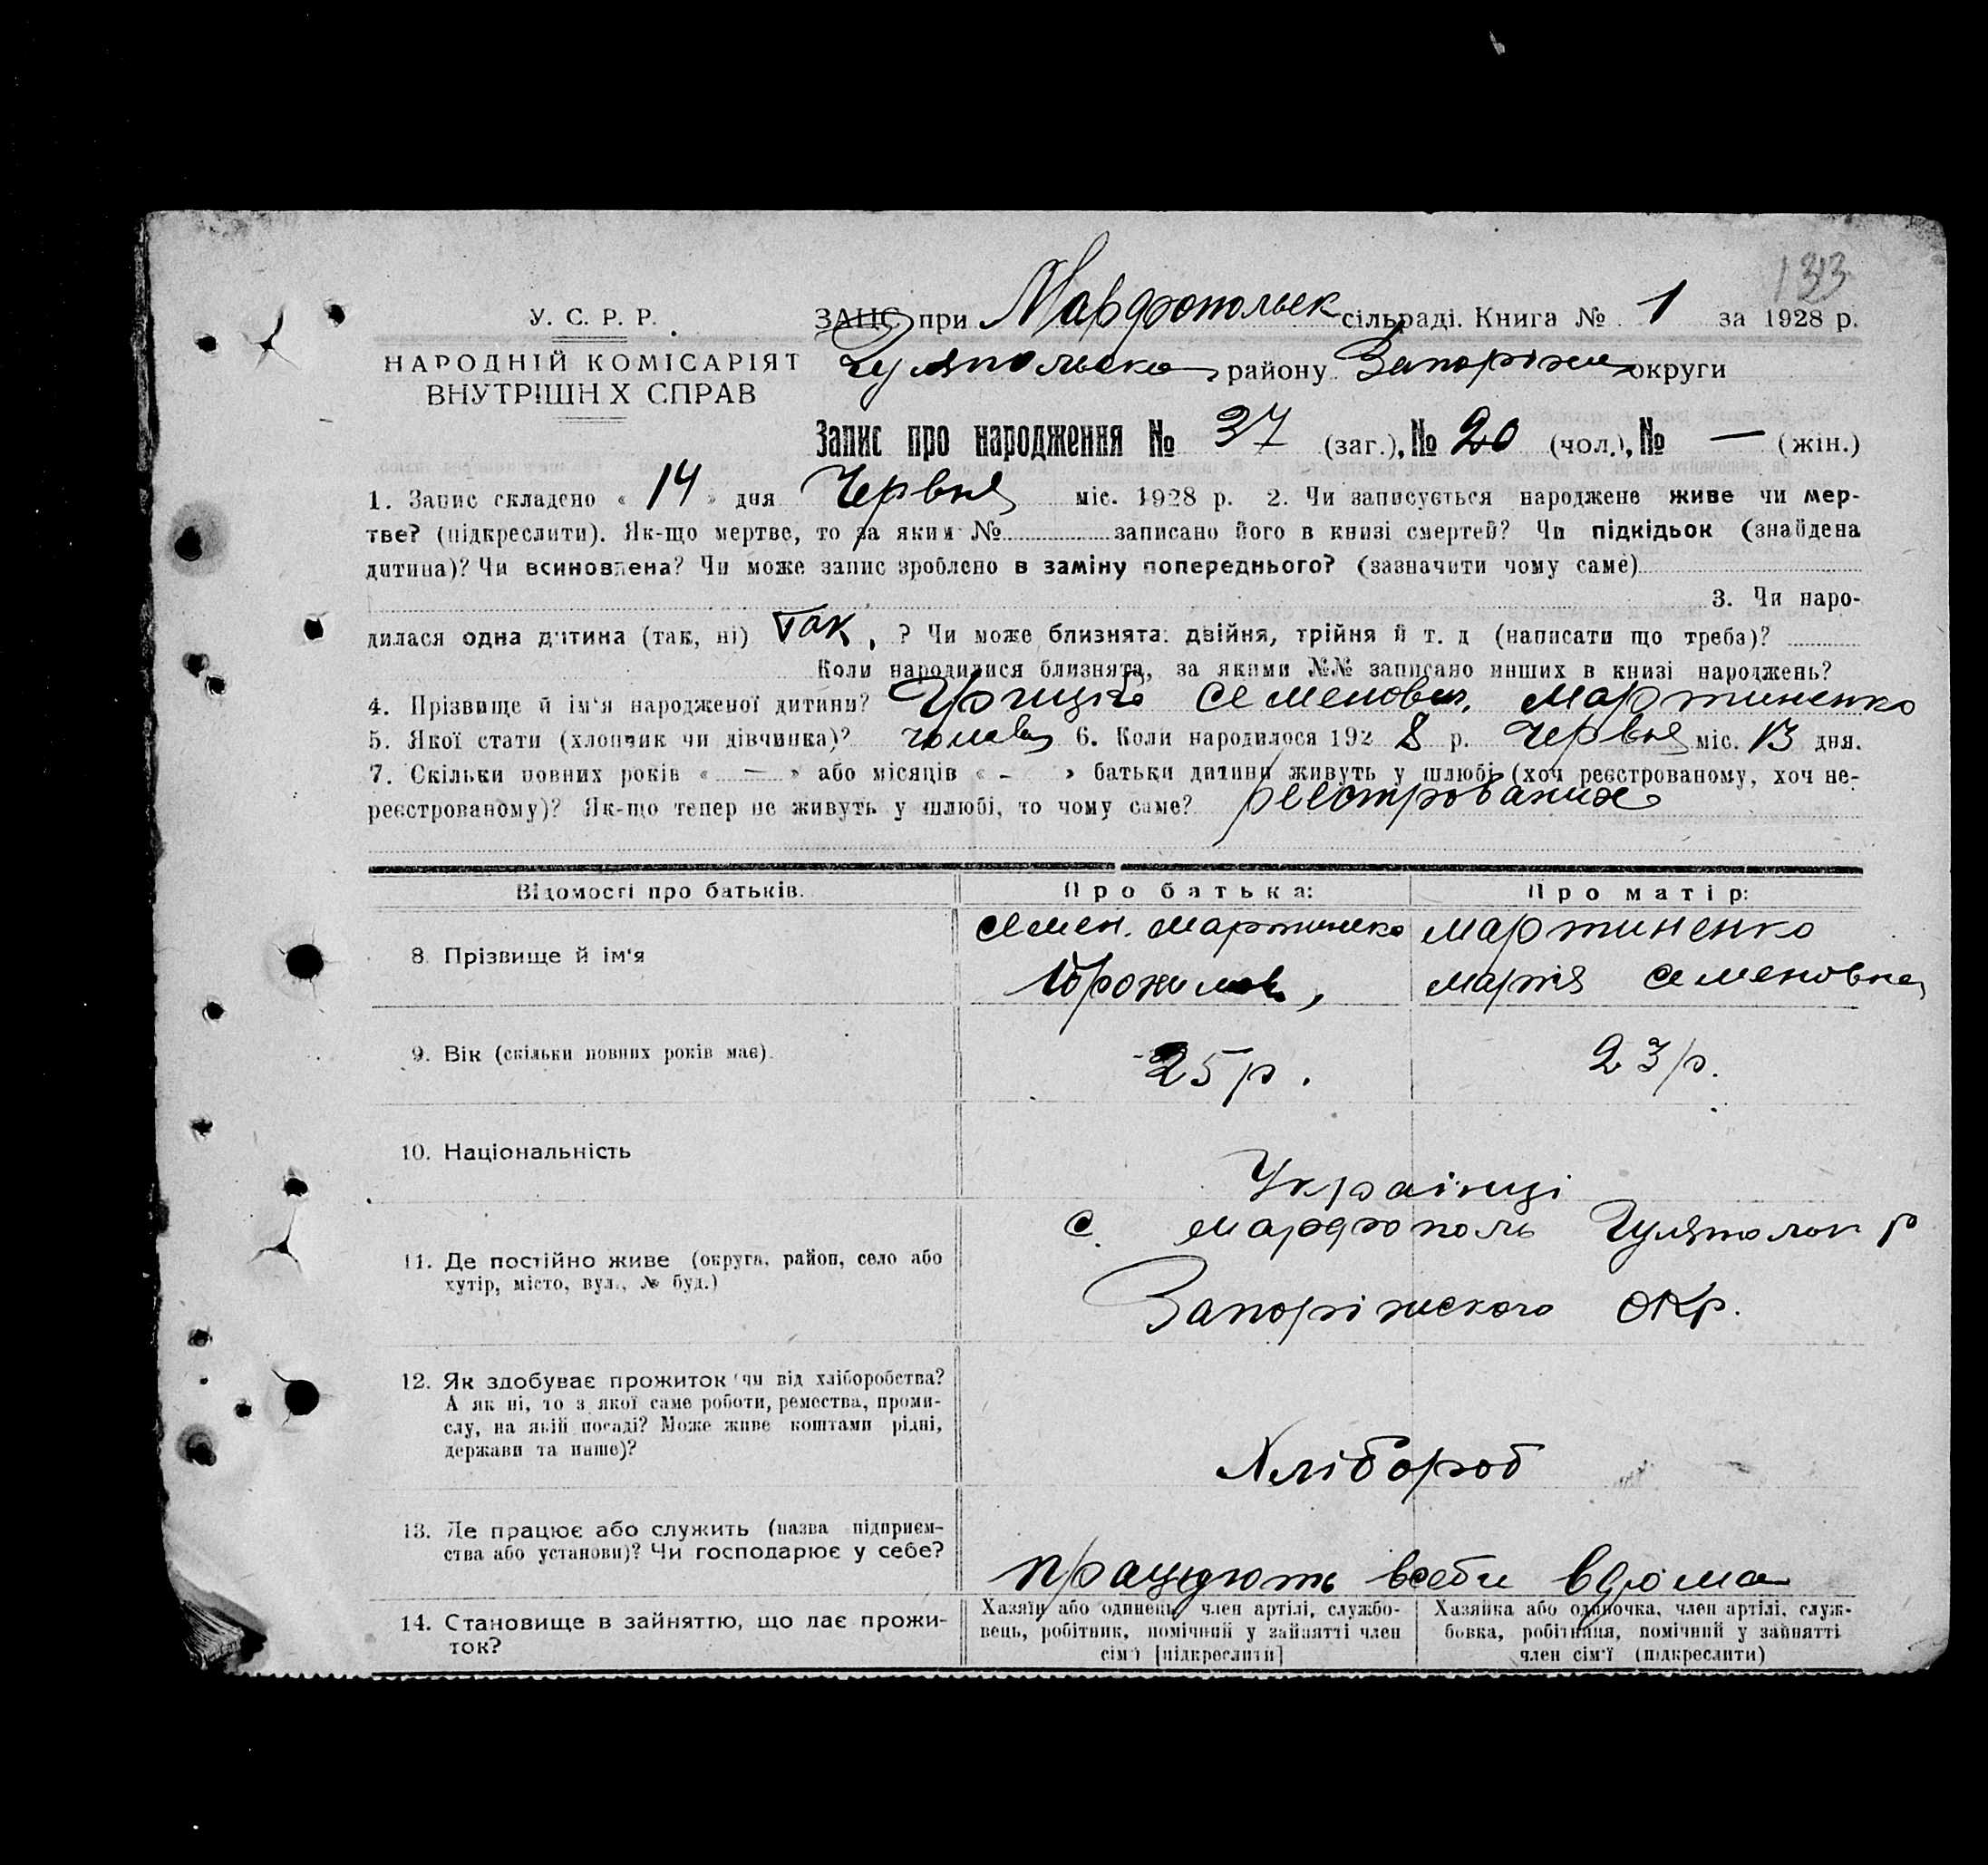 133
У. С. Р. Р.
НАРОДНІЙ КОМІСАРІЯТ
ВНУТРІШН Х СПРАВ
ЗАПС при Марфопольск сільраді. Книга № 1 за 1928 р.
Гуляпольско району Запоріж округи
Запис про народження № 37 (заг.), № 20 (чол.), № — (жін.)
1. Запис складено « 14 » дня Червня міс. 1928 р. 2. Чи записується народжене живе чи мер-
тве? (підкреслити). Як-що мертве, то за яким № записано його в книзі смертей? Чи підкідьок (знайдена
дитина)? Чи всиновлена? Чи може запис зроблено в заміну попереднього? (зазначити чому саме)
3. Чи наро-
дилася одна дитина (так, ні) так, ? Чи може близнята: двійня, трійня й т. д (написати що треба)?
Коли народилися близнята, за якими №№ записано инших в книзі народжень?
4. Прізвище й ім'я народженої дитини? Грицько Семенович Мартиненко
5. Якої статі (хлопчик чи дівчинка)? 6. Коли народилося 192 8 р. Червня міс. 13 дня.
7. Скільки повних років « — » або місяців « - » батьки дитини живуть у шлюбі (хоч реєстрованому, хоч не-
реєстрованому)? Як-що тепер не живуть у шлюбі, то чому саме?
Відомості про батьків. Про батька: Про матір:
8 Прізвище й ім'я Семен. Мартиненко Мартиненко
Марія Семеновна
9. Вік (скільки повних років має). 25 р. 23 р.
10. Національність Українці
11. Де постійно живе (округа, район, село або
хутір, місто, вул., № буд.)
с. Марфополь Гуляполск р
Запоріжского окр.
12. Як здобуває прожиток (чи від хліборобства?
А як ні, то з якої саме роботи, ремества, проми-
слу, на якій посаді? Може живе коштами рідні,
держави та инше)?
Хлібороб
13. Де працює або служить (назва підприєм-
ства або установи)? Чи господарює у себе?
працюють всебе вдома
14. Становище в зайняттю, що дає прожи-
ток?
Хазяїн або одинець, член артілі, службо-
вець, робітник, помічний у зайнятті член
сім'ї [підкреслити]
Хазяйка або одиночка, член артілі, служ-
бовка, робітниця, помічний у зайнятті
член сім'ї (підкреслити)